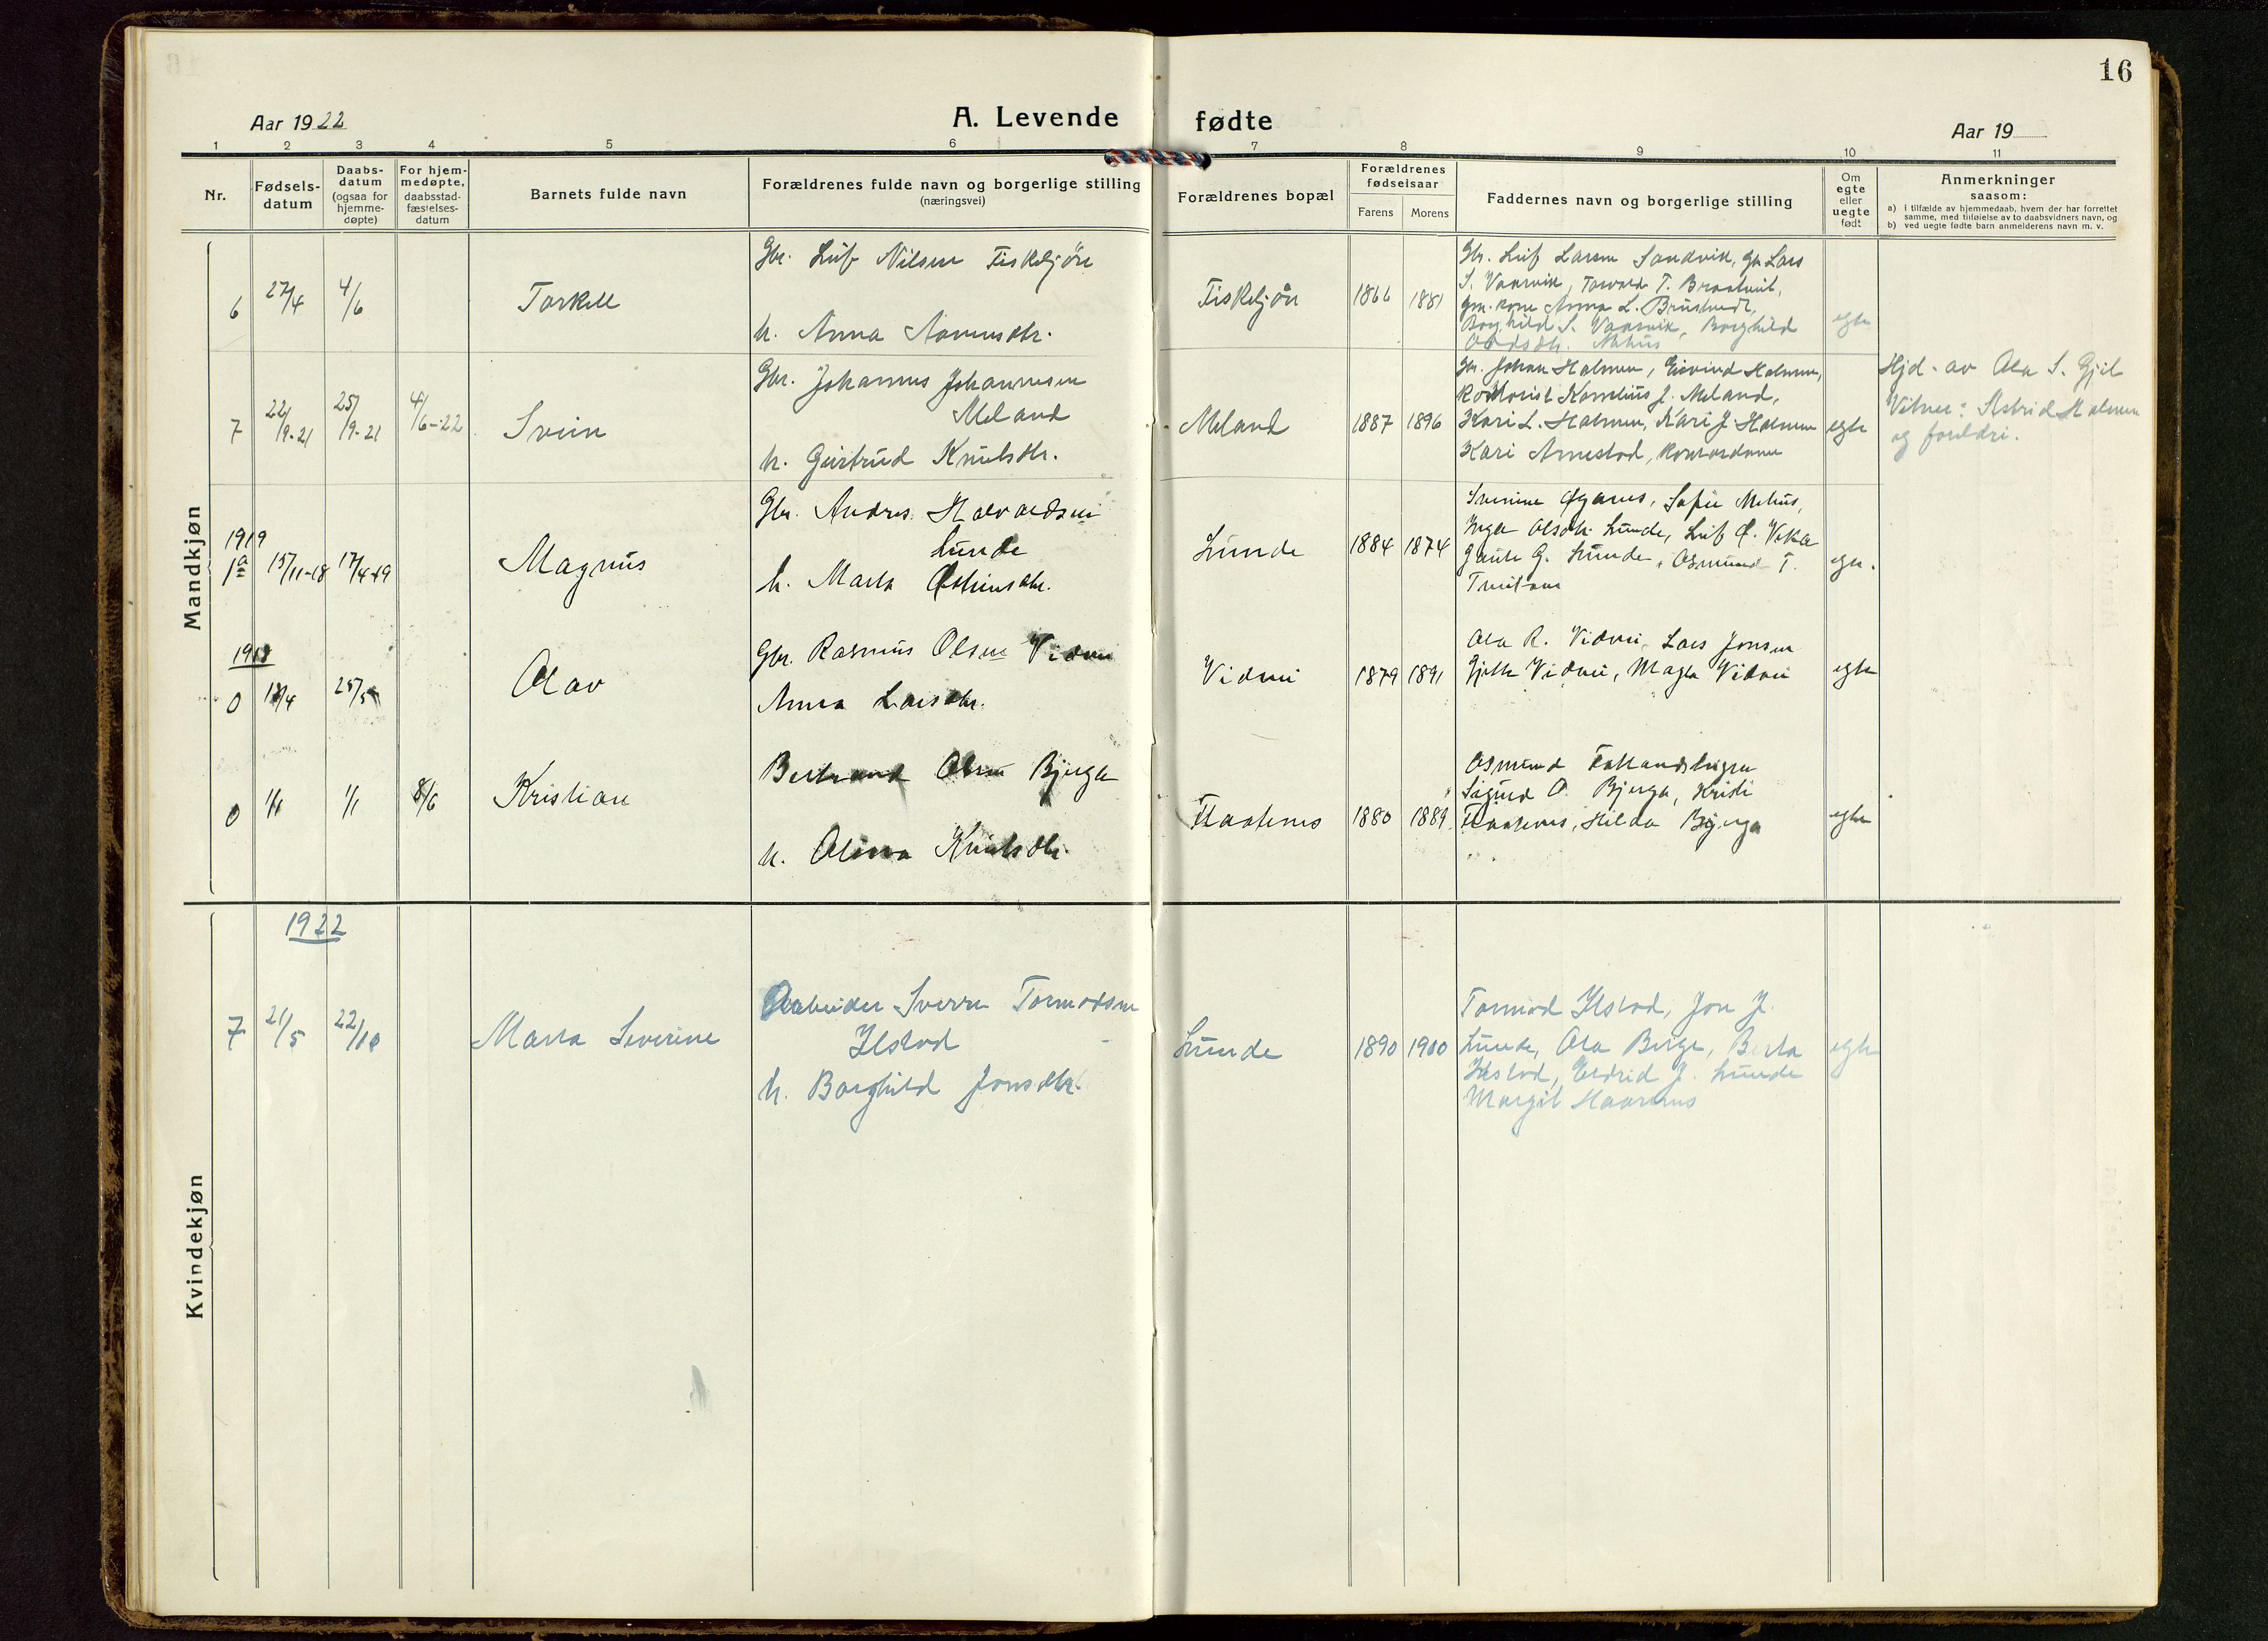 16
Aar 1922
A. Levende fødte
Aar 19
1 2 3 4 5 6 7 8 9 10 11
Nr.
Fødsels-
datum
Daabs-
datum
(ogsaa for
hjemme-
døpte)
For hjem-
medøpte,
daabsstad-
fæstelses-
datum
Barnets fulde navn
Forældrenes fulde navn og borgerlige stilling
(næringsvei)
Forældrenes bopæl
Forældrenes
fødselsaar
Farens Morens
Faddernes navn og borgerlige stilling
Om
egte
eller
uegte
født
Anmerkninger
saasom:
a) i tilfælde av hjemmedaab, hvem der har forrettet
samme, med tilføielse av to daabsvidners navn, og
b) ved uegte fødte barn anmelderens navn m. v.
Mandkjøn
6 27/4 4/6 Torkell
Gbr. Leif Nilsen Fiskeljøn
h. Anna
Fiskeljøn 1866 1881
Gbr. Leif Larsen Sandvik, Gbr Lars
S. Vaarvik, Torvald T. Braatveit,
Anna L.
Borghild S. Vaarvik, Borghild
Mehus
egte
7 22/9-21 25/9-21 4/6-22 Svein
Gbr. Johannes Johannesen
Meland
h. Gurtrud Knutsdtr.
Meland 1887 1896
Gbr. Johan Holmen, Eivind Holmen,
Kornelius J. Meland,
Kari L. Holmen, Kari J. Holmen
Kari Arnestad,
egte
Hjd. av Ola S. Gjil
Vitner: Astrid Holmen
og foreldri.
1919
1a 15/11-18 17/4-19 Magnus
Gbr. Andres Halvardsen
Lunde
h. Marta Østeinsdtr.
Lunde 1884 1874
Severine Øganes, Sofie Mehus,
Inga Olsdtr. Lunde, Leif Ø. Veka
Gaute G. Lunde, Osmund T.
Tveitane
egte.
1918
0 18/4 25/5 Olav
Gbr. Rasmus Olsen Vidvei
Anna Larsdtr.
Vidvei 1879 1891
Ola R. Vidvei, Lars Jonsen
Vidvei, Magla Vidvei
egte
0 1/1 1/1 8/6 Kristian
Bertrand Olsen Bjerga
h. Olina Knutsdtr.
Flaatenes 1880 1889
Osmund
Sigurd O. Bjerga, Kristi
Flaatenes, Hilda Bjerga
egte
Kvindekjøn
1922
7 21/5 22/10 Marta Severine
Arbeider Sverre Tormodsen
Ilstad
h. Borghild Jonsdtr.
Lunde 1890 1900
Tormod Ilstad, Jon J.
Lunde, Ola Berge, Berta
Ilstad, Eldrid J. Lunde
Margit
egte